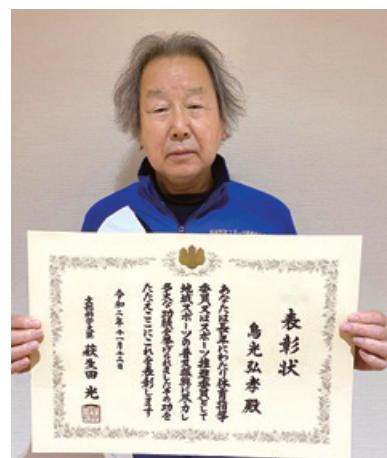 表彰状
鳥光弘孝 殿
あなたは長年にわたり体育指導
委員又はスポーツ推進委員として
地域スポーツの普及振興に尽力し
多大な功績を挙げられましたその功を
たたえここにこれを表彰します
令和二年十一月十二日
文部科学大臣 萩生田光一